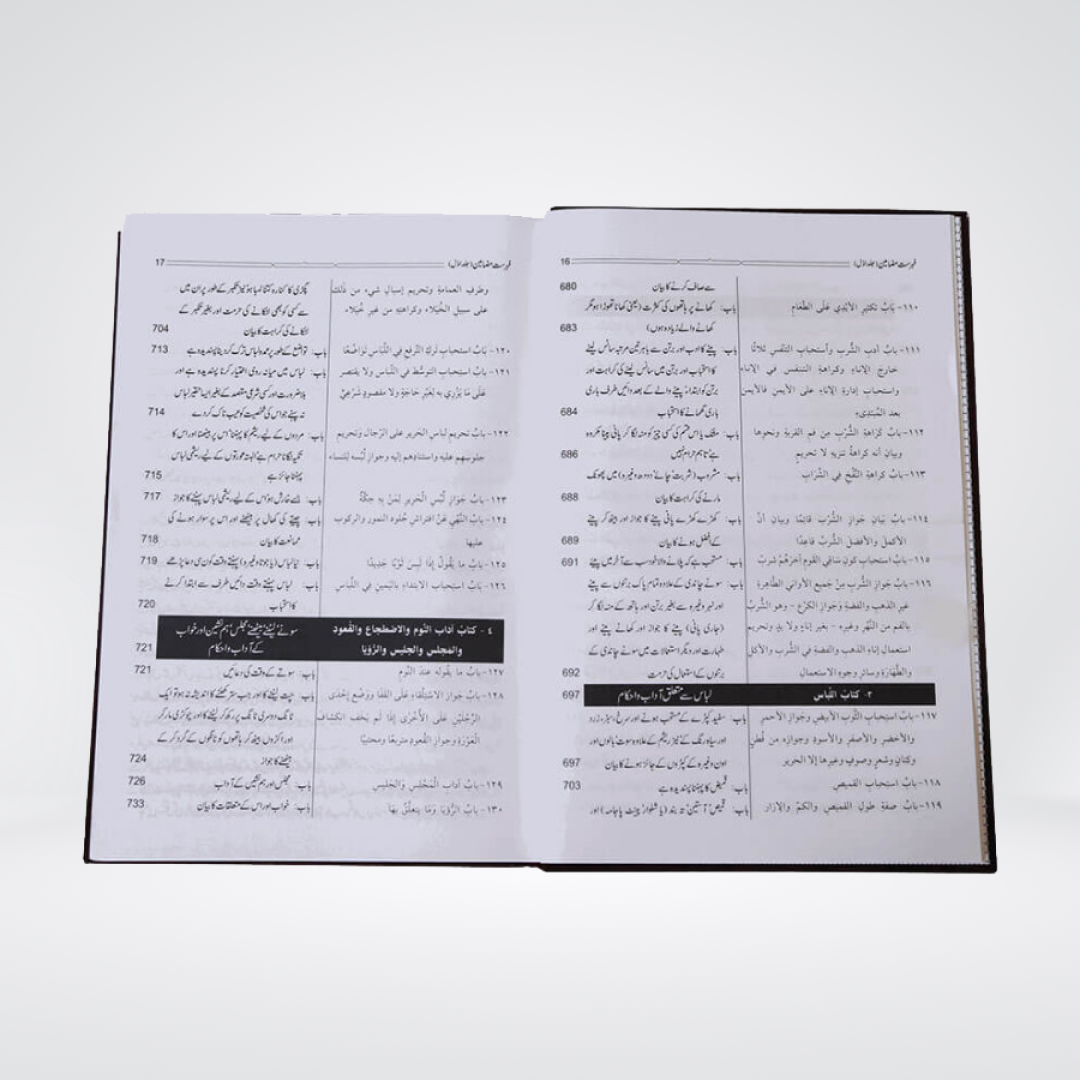 فہرست مضامین (جلد اوّل) 16
سے صاف کرنے کا بیان 680
١١٠- بابُ تكثير الأيْدِي عَلَى الطَّعَامِ
باب: کھانے پر ہاتھوں کی کثرت (یعنی کھانا تھوڑا ہو مگر
کھانے والے زیادہ ہوں) 683
١١١- بابُ أدبِ الشُّربِ واستحبابِ التنفُّسِ ثلاثًا
خارجَ الإناءِ وكراهةِ التنفُّسِ في الإناءِ
واستحبابِ إدارةِ الإناءِ على الأيمنِ فالأيمنِ
بعد المُبْتَدِىءِ
باب: پینے کا ادب اور برتن سے باہر تین مرتبہ سانس لینے
کا استحباب اور برتن میں سانس لینے کی کراہت اور
برتن کو ابتداءً پینے والے کے بعد دائیں طرف باری
باری گھمانے کا استحباب 684
١١٢- بابُ كراهةِ الشُّربِ من فمِ القِربةِ ونحوِها
وبيانِ أنه كراهةُ تنزيهٍ لا تحريمٍ
باب: مشک یا اس قسم کی کسی چیز کو منہ لگا کر پانی پینا مکروہ
ہے تاہم حرام نہیں 686
١١٣- بابُ كراهةِ النَّفْخِ في الشَّرابِ
باب: مشروب (شربت، چائے، دودھ وغیرہ) میں پھونک
مارنے کی کراہت کا بیان 688
١١٤- بابُ بيانِ جوازِ الشُّربِ قائمًا وبيانِ أنَّ
الأكملَ والأفضلَ الشُّربُ قاعدًا
باب: کھڑے کھڑے پانی پینے کا جواز اور بیٹھ کر پینے
کے افضل ہونے کا بیان 689
١١٥- بابُ استحبابِ كونِ ساقي القومِ آخرَهُم شربًا
باب: مستحب ہے کہ پلانے والا خود سب سے آخر میں پیئے 691
١١٦- بابُ جوازِ الشُّربِ من جميعِ الأواني الطَّاهرةِ
غيرِ الذهبِ والفضةِ وجوازِ الكَرْعِ - وهو الشُّربُ
بالفمِ من النَّهرِ وغيرِه - بغيرِ إناءٍ ولا يدٍ وتحريمِ
استعمالِ إناءِ الذهبِ والفضةِ في الشُّربِ والأكلِ
والطَّهارةِ وسائرِ وجوهِ الاستعمالِ
باب: سونے چاندی کے علاوہ تمام پاک برتنوں سے پینے
اور نہر وغیرہ سے بغیر برتن اور ہاتھ کے منہ لگا کر
(جاری پانی) پینے کا جواز اور کھانے پینے اور
طہارت اور دیگر استعمالات میں سونے چاندی کے
برتنوں کے استعمال کی حرمت 692
٣- كتابُ اللِّبَاس لباس سے متعلق آداب و احکام 697
١١٧- بابُ استحبابِ الثَّوبِ الأبيضِ وجوازِ الأحمرِ
والأخضرِ والأصفرِ والأسودِ وجوازِه من قُطنٍ
وكتانٍ وشعرٍ وصوفٍ وغيرِها إلا الحرير
باب: سفید کپڑے کے مستحب ہونے اور سرخ، سبز، زرد
اور سیاہ رنگ کے نیز ریشم کے علاوہ سوت، بالوں اور
اون وغیرہ کے کپڑوں کے جائز ہونے کا بیان 697
١١٨- بابُ استحبابِ القميصِ
باب: قمیض کا پہننا پسندیدہ ہے 703
١١٩- بابُ صفةِ طولِ القميصِ والكمِّ والإزارِ
باب: قمیص، آستین، تہ بند (یا شلوار، پینٹ، پاجامہ) اور
فہرست مضامین (جلد اوّل) 17
وطرفِ العمامةِ وتحريمِ إسبالِ شيءٍ من ذلك
على سبيلِ الخُيَلاءِ وكراهتِه من غيرِ خُيَلاءَ
پگڑی کا کنارہ کتنا لمبا ہو نیز تکبر کے طور پر ان میں
سے کسی کو بھی لٹکانے کی حرمت اور بغیر تکبر کے
لٹکانے کی کراہت کا بیان 704
١٢٠- بابُ استحبابِ تركِ التَّرفعِ في اللِّباسِ تواضُعًا
باب: تواضع کے طور پر عمدہ لباس ترک کر دینا پسندیدہ ہے 713
١٢١- بابُ استحبابِ التوسُّطِ في اللِّباسِ ولا يقتصرُ
عَلَى مَا يَزْري به لغيرِ حاجةٍ ولا مقصودٍ شرعيٍّ
باب: لباس میں میانہ روی اختیار کرنا پسندیدہ ہے اور
بلا ضرورت اور کسی شرعی مقصد کے بغیر ایسا حقیر لباس
نہ پہنے جو اس کی شخصیت کو عیب ناک کر دے 714
١٢٢- بابُ تحريمِ لباسِ الحريرِ على الرِّجالِ وتحريمِ
جلوسِهم عليه واستنادِهم إليه وجوازِ لُبْسِه للنساء
باب: مردوں کے لیے ریشم کا پہننا، اس پر بیٹھنا اور اس کا
تکیہ لگانا حرام ہے البتہ عورتوں کے لیے ریشمی لباس
پہننا جائز ہے 715
١٢٣- بابُ جوازِ لُبْسِ الحريرِ لمنْ به حِكَّةٌ
باب: جسے خارش ہو اس کے لیے ریشمی لباس پہننے کا جواز 717
١٢٤- بابُ النَّهْيِ عَنِ افتراشِ جُلودِ النمورِ والركوبِ
عليها
باب: چیتے کی کھال پر بیٹھنے اور اس پر سوار ہونے کی
ممانعت کا بیان 718
١٢٥- بابُ ما يقولُ إذا لبسَ ثوبًا جديدًا
باب: نیا لباس (یا جوتا وغیرہ) پہنتے وقت کون سی دعا پڑھے 719
١٢٦- بابُ استحبابِ الابتداءِ باليمينِ في اللِّباسِ
باب: لباس پہنتے وقت دائیں طرف سے ابتدا کرنے
کا استحباب 720
٤- كتابُ آدابِ النَّومِ والاضطجاعِ والقُعودِ
والمجلسِ والجليسِ والرُّؤيَا
سونے، لیٹنے، بیٹھنے، مجلس، ہم نشین اور خواب
کے آداب و احکام 721
١٢٧- بابُ ما يقولُه عند النَّومِ
باب: سوتے کے وقت کی دعائیں 721
١٢٨- بابُ جوازِ الاستلقاءِ على القفا ووضعِ إحْدَى
الرِّجْلَيْنِ على الأُخْرَى إذا لم يَخَفِ انكشافَ
العَوْرَةِ وجوازِ القُعودِ متربعًا ومحتبيًا
باب: چت لیٹنے کا اور جب ستر کھلنے کا اندیشہ نہ ہو تو ایک
ٹانگ دوسری ٹانگ پر رکھ کر لیٹنے کا اور چوکڑی مار کر
اور اکڑوں بیٹھ کر ہاتھوں کو ٹانگوں کے گرد کر کے
بیٹھنے کا جواز 724
١٢٩- بابُ آدابِ المَجْلسِ والجليسِ
باب: مجلس اور ہم نشین کے آداب 726
١٣٠- بابُ الرُّؤيَا وَمَا يتعلَّقُ بها
باب: خواب اور اس کے متعلقات کا بیان 733